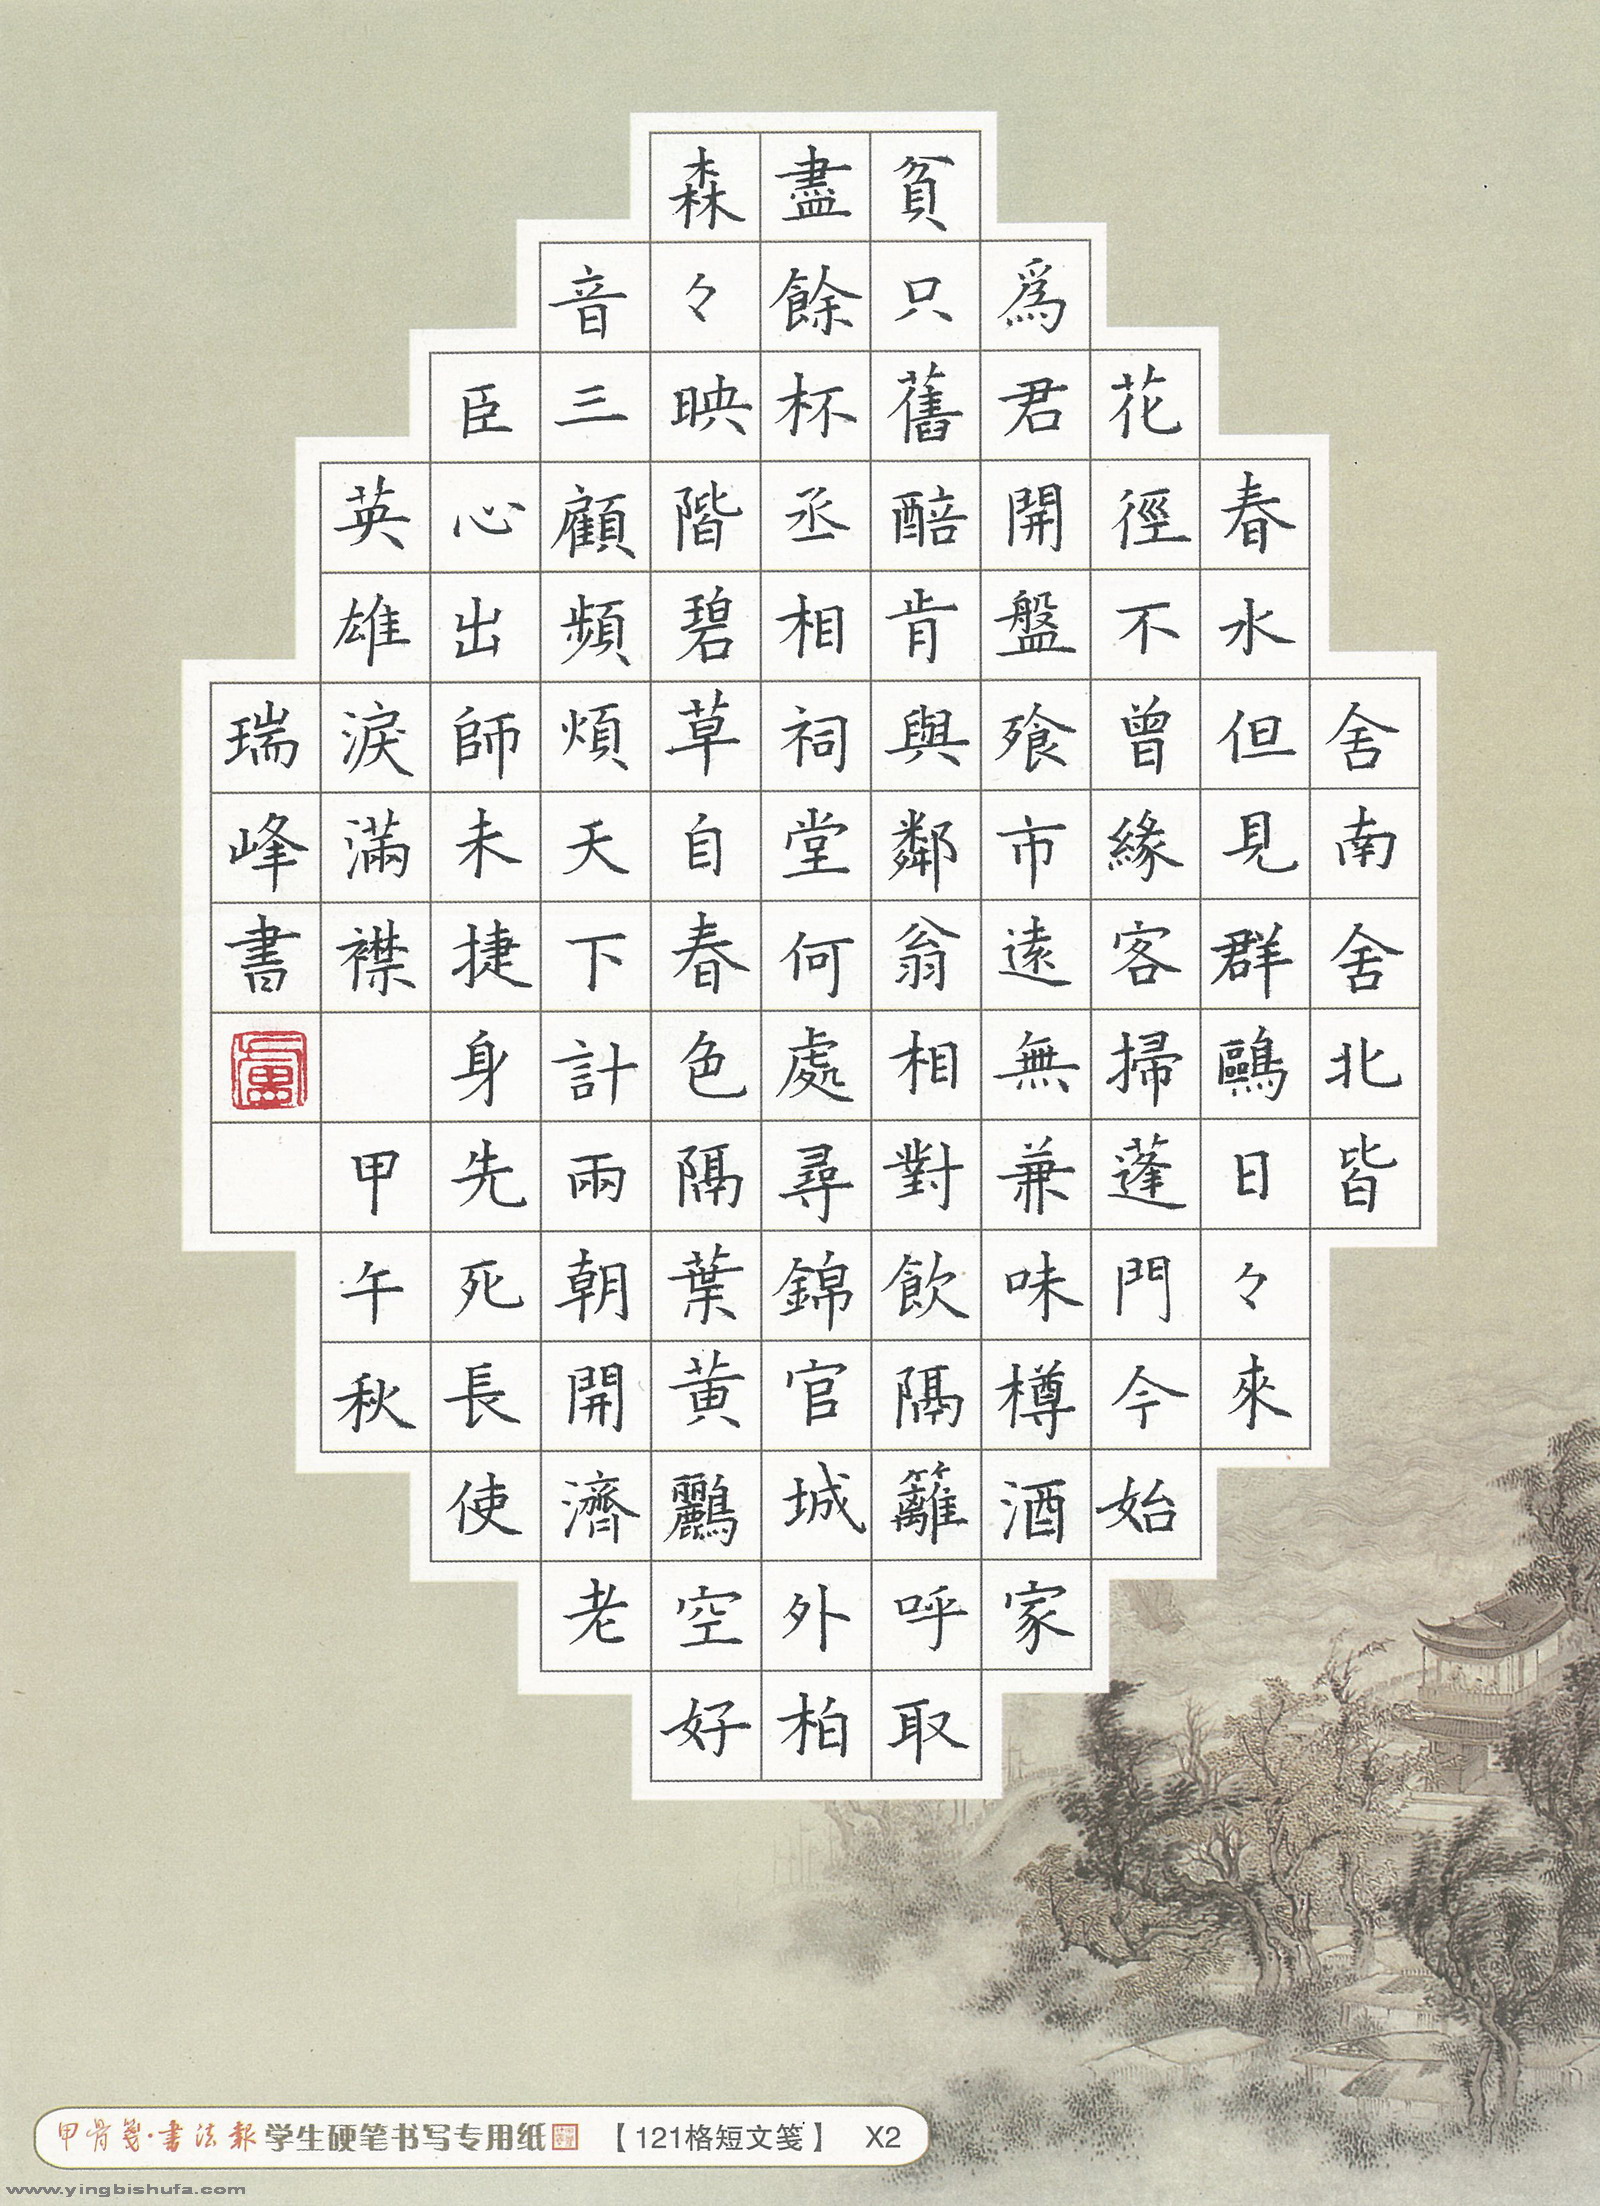 舍南舍北皆
春水但見群鷗日々來
花徑不曾緣客掃蓬門今始
爲君開盤飱市遠無兼味樽酒家
貧只舊醅肯與鄰翁相對飲隔籬呼取
盡餘杯丞相祠堂何處尋錦官城外柏
森々映階碧草自春色隔葉黄鸝空好
音三顧頻煩天下計兩朝開濟老
臣心出師未捷身先死長使
英雄淚滿襟 甲午秋
瑞峰書
甲骨箋·書法報 学生硬笔书写专用纸 【121格短文笺】 X2
www.yingbishufa.com